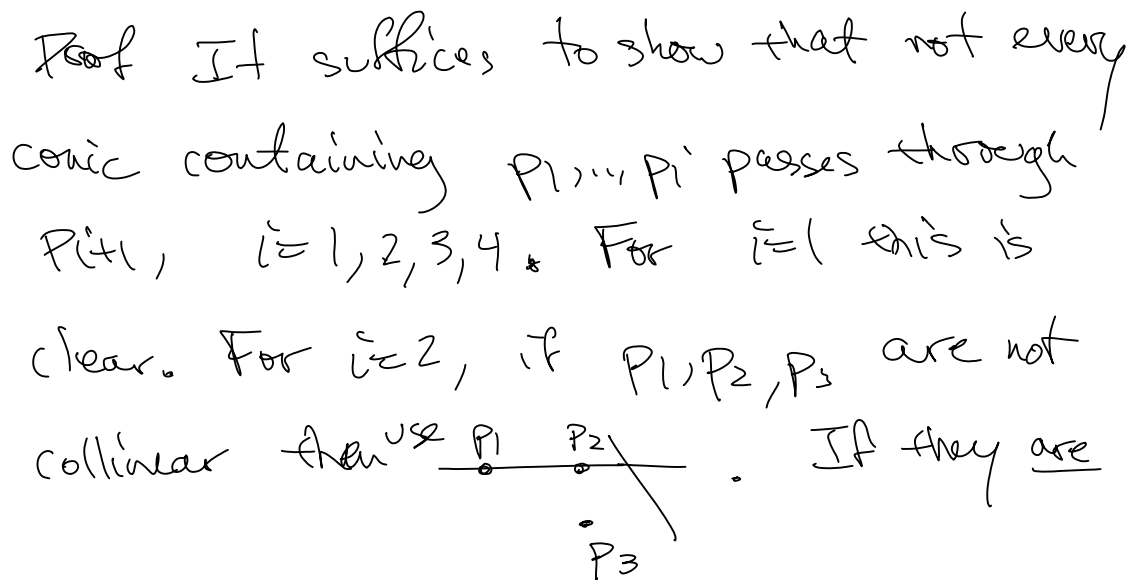 Proof It suffices to show that not every
conic containing p1,..., pi passes through
Pi+1, i=1,2,3,4. For i=1 this is
clear. For i=2, if P1,P2,P3 are not
collinear then use P1 P2 . If they are
P3